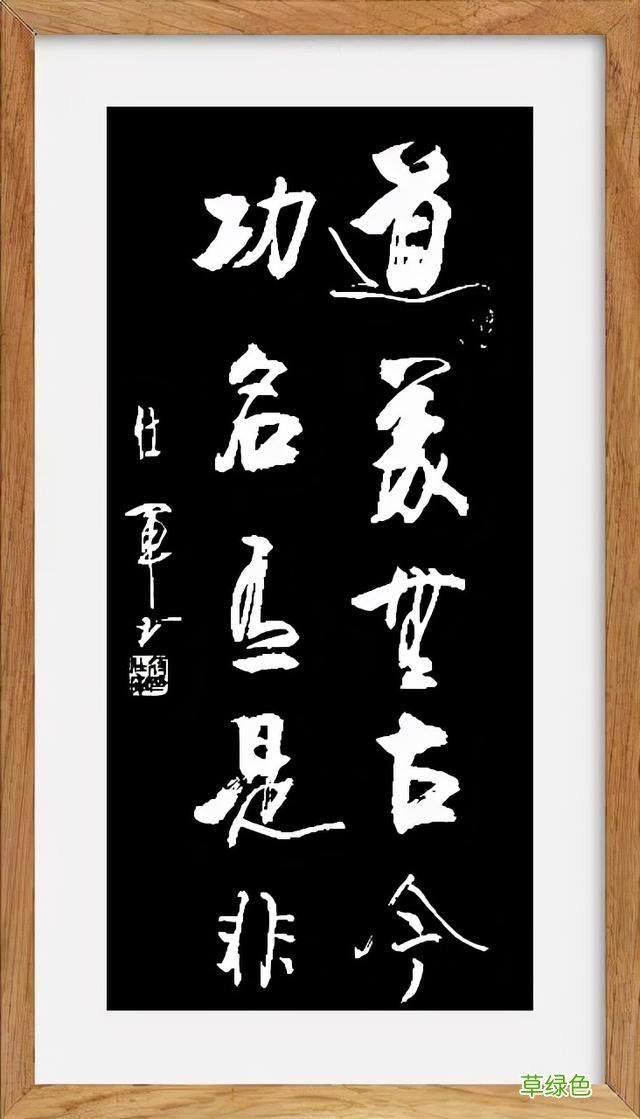 道義無古今
功名有是非
仕軍书
草绿色